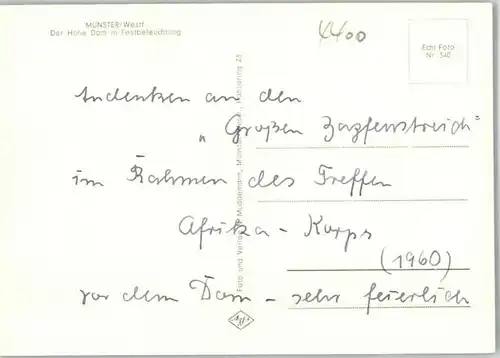 MÜNSTER/Westf.
Der Hohe Dom in Festbeleuchtung
4400
Echt Foto
Nr. 540
Andenken an den
„Großen Zapfenstreich"
im Rahmen des Treffen
Afrika-Korps
(1960)
vor dem Dom - sehr feierlich
Foto und Verlag
Agfa